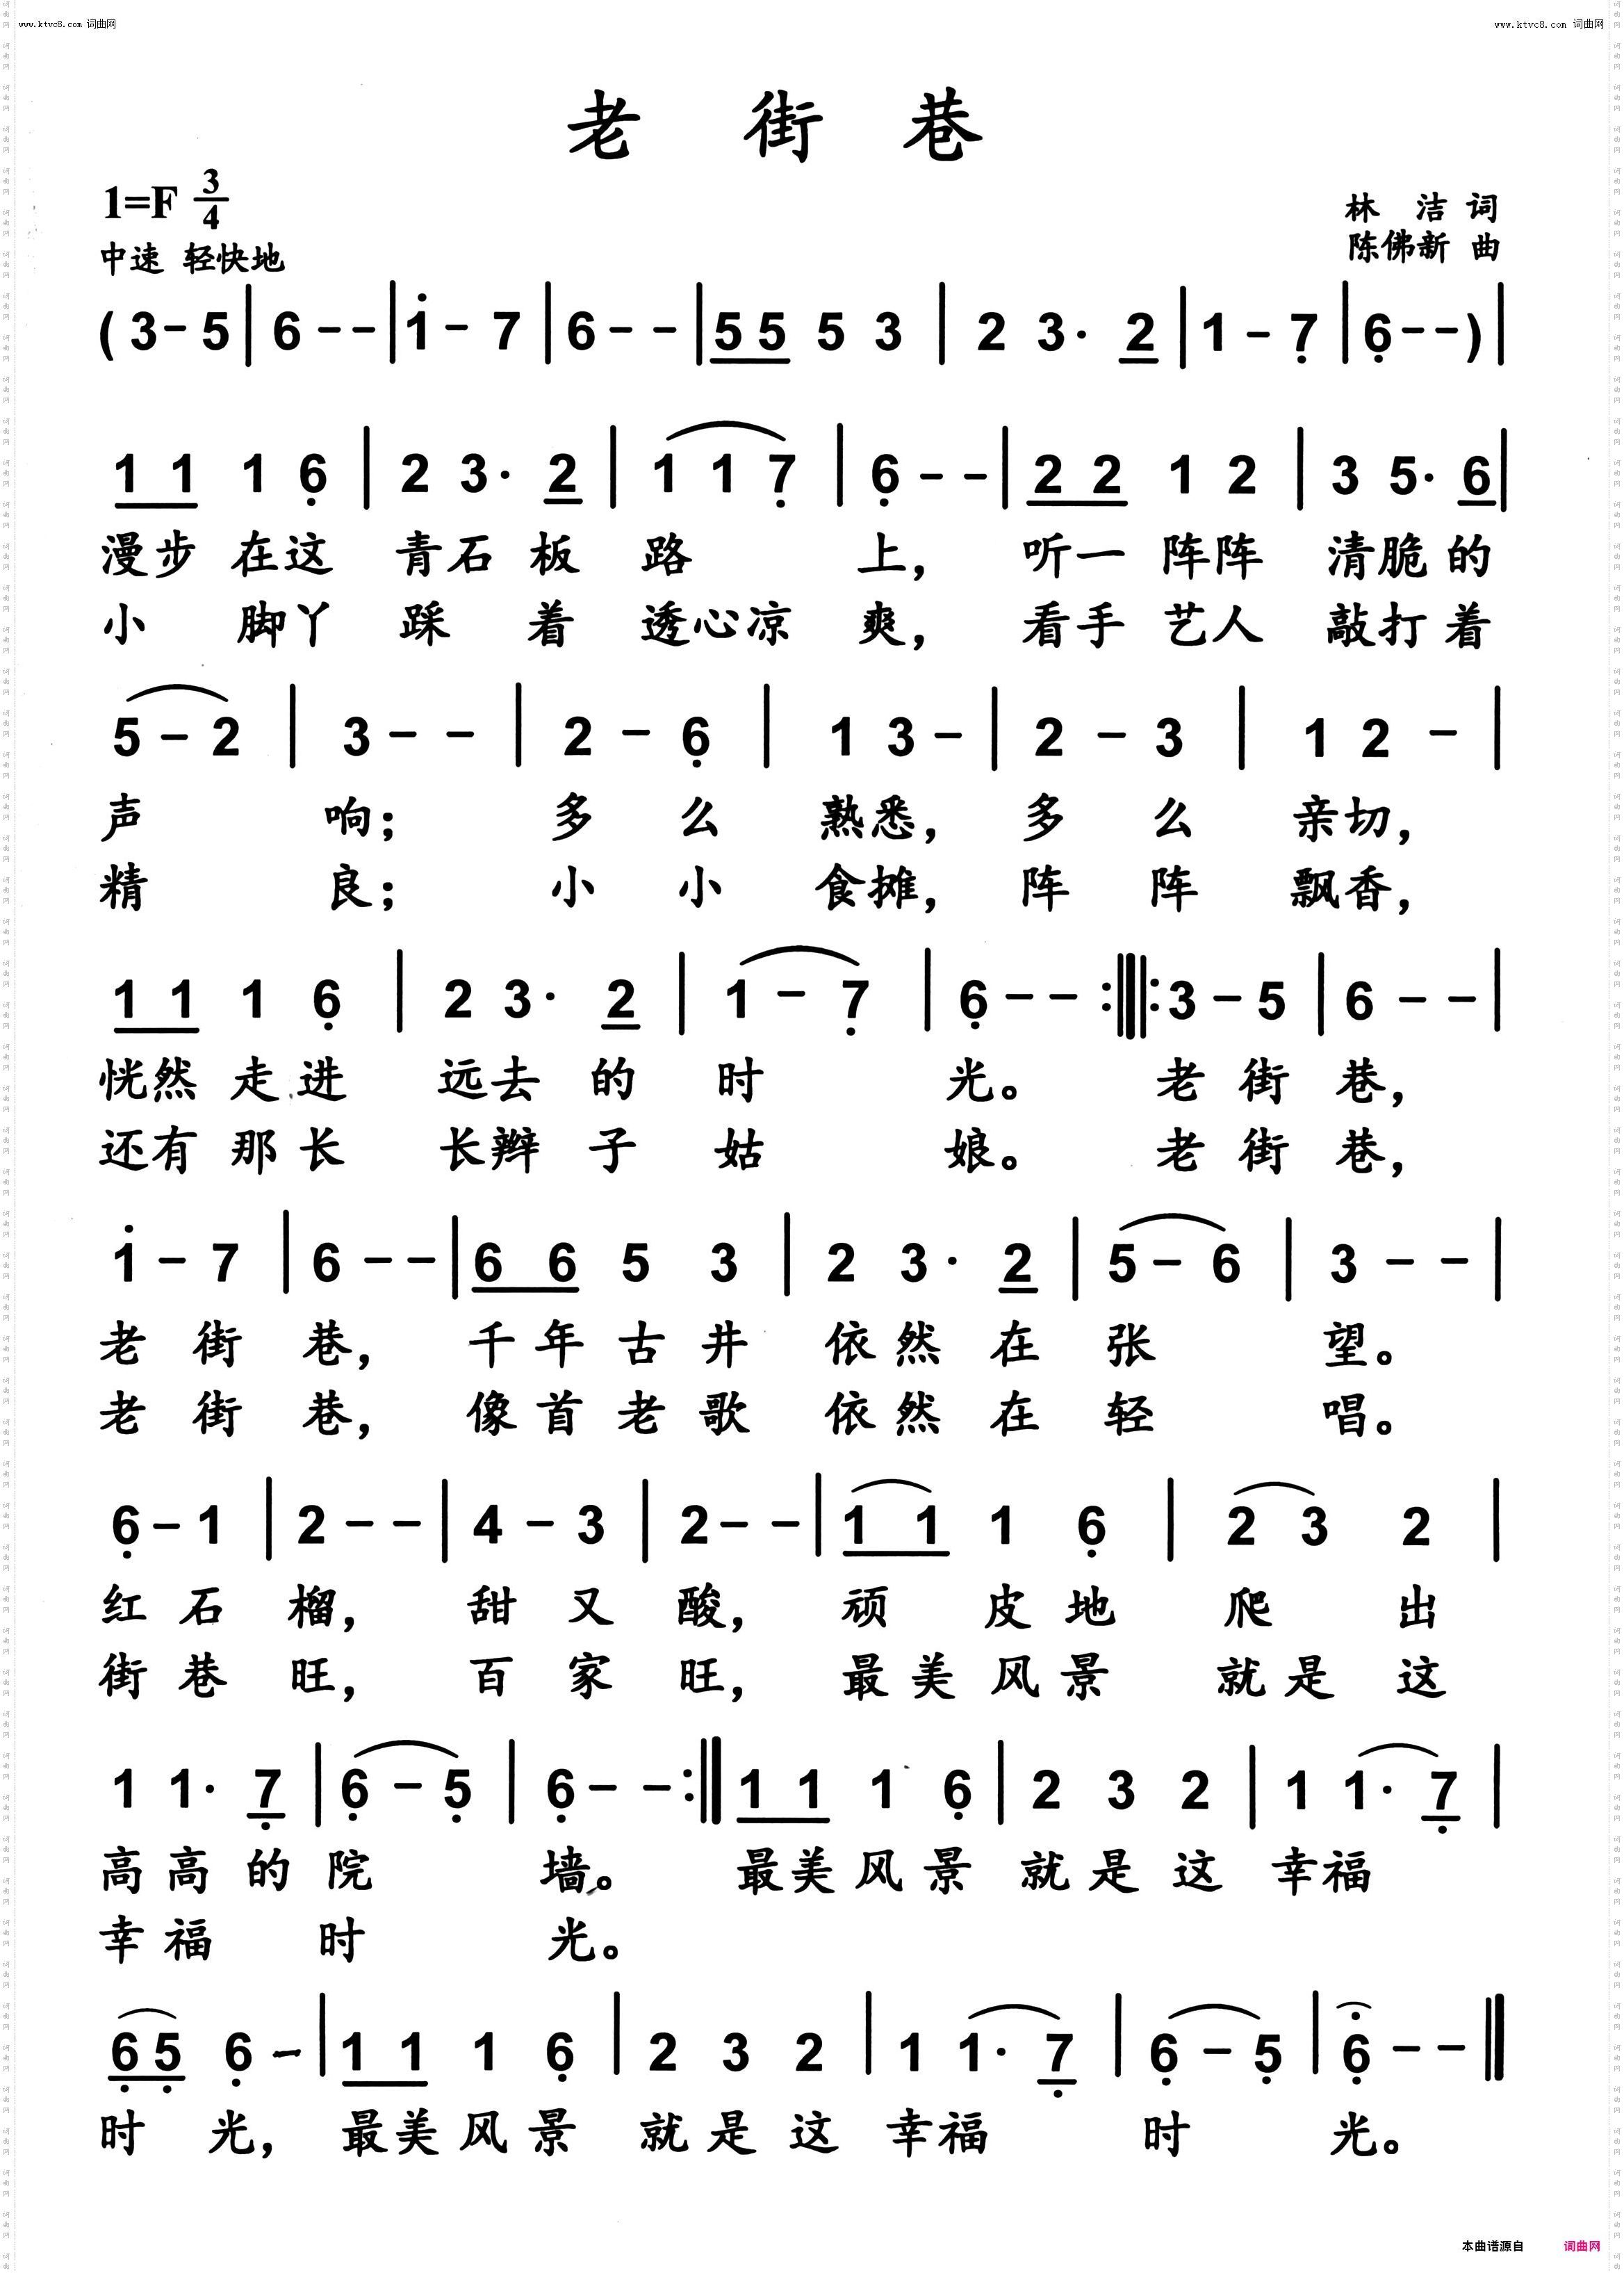 www.ktvc8.com 词曲网
www.ktvc8.com 词曲网
老 街 巷
1=F 3/4
林 洁 词
中速 轻快地
陈佛新 曲
( 3 - 5 | 6 - - | 1̇ - 7 | 6 - - | 5 5 5 3 | 2 3· 2 | 1 - 7̣ | 6̣ - - ) |
1 1 1 6̣ | 2 3· 2 | 1 1 7̣ | 6̣ - - | 2 2 1 2 | 3 5· 6 |
漫步 在这 青石 板 路 上, 听一 阵阵 清脆的
小 脚丫 踩 着 透心凉 爽, 看手 艺人 敲打着
5 - 2 | 3 - - | 2 - 6̣ | 1 3 - | 2 - 3 | 1 2 - |
声 响; 多 么 熟悉, 多 么 亲切,
精 良; 小 小 食摊, 阵 阵 飘香,
1 1 1 6̣ | 2 3· 2 | 1 - 7̣ | 6̣ - - :‖: 3 - 5 | 6 - - |
恍然 走 进 远去 的 时 光。 老 街 巷,
还有 那 长 长辫 子 姑 娘。 老 街 巷,
1̇ - 7 | 6 - - | 6 6 5 3 | 2 3· 2 | 5 - 6 | 3 - - |
老 街 巷, 千 年 古 井 依 然 在 张 望。
老 街 巷, 像 首 老 歌 依 然 在 轻 唱。
6̣ - 1 | 2 - - | 4 - 3 | 2 - - | 1 1 1 6̣ | 2 3 2 |
红 石 榴, 甜 又 酸, 顽 皮 地 爬 出
街 巷 旺, 百 家 旺, 最 美 风 景 就 是 这
1 1· 7̣ | 6̣ - 5̣ | 6̣ - - :‖ 1 1 1 6̣ | 2 3 2 | 1 1· 7̣ |
高 高 的 院 墙。 最美 风 景 就 是 这 幸福
幸 福 时 光。
6̣ 5̣ 6̣ - | 1 1 1 6̣ | 2 3 2 | 1 1· 7̣ | 6̣ - 5̣ | 6̣ - - ‖
时 光, 最美 风 景 就 是 这 幸福 时 光。
本曲谱源自 词曲网